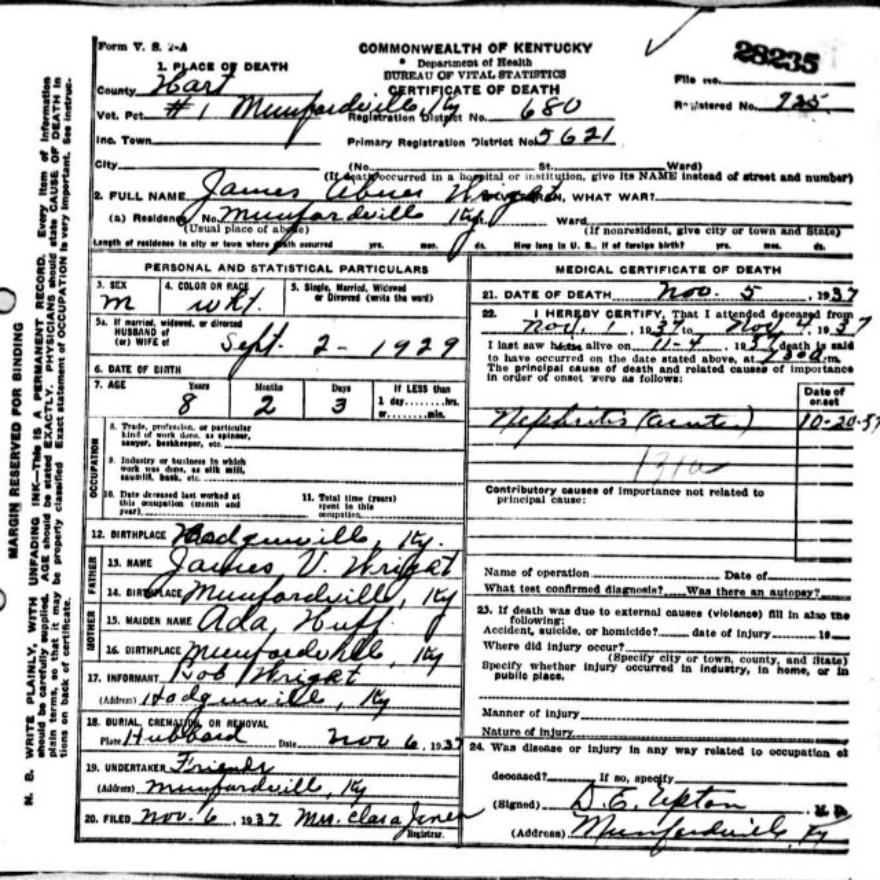 Form V. S. 2-A
COMMONWEALTH OF KENTUCKY
Department of Health
BUREAU OF VITAL STATISTICS
CERTIFICATE OF DEATH
28235
File No.
Registered No. 925
1. PLACE OF DEATH
County Hart
Vot. Pct. #1 Munfordville Ky Registration District No. 680
Inc. Town Primary Registration District No. 5621
City (No. St. Ward)
(If death occurred in a hospital or institution, give its NAME instead of street and number)
2. FULL NAME James Abner Wright WHAT WAR?
(a) Residence No. Munfordville Ky. Ward
(Usual place of abode) (If nonresident, give city or town and State)
Length of residence in city or town where death occurred yrs. mos. ds. How long in U. S., if of foreign birth? yrs. mos. ds.
PERSONAL AND STATISTICAL PARTICULARS
3. SEX
m
4. COLOR OR RACE
wht.
5. Single, Married, Widowed
or Divorced (write the word)
5a. If married, widowed, or divorced
HUSBAND of
(or) WIFE of
Sept. 2 - 1929
6. DATE OF BIRTH
7. AGE Years Months Days If LESS than
8 2 3 1 day........hrs.
or........min.
OCCUPATION
8. Trade, profession, or particular
kind of work done, as spinner,
sawyer, bookkeeper, etc.
9. Industry or business in which
work was done, as silk mill,
sawmill, bank, etc.
10. Date deceased last worked at
this occupation (month and
year)
11. Total time (years)
spent in this
occupation
12. BIRTHPLACE Hodgenville, Ky.
FATHER
13. NAME James V. Wright
14. BIRTHPLACE Munfordville, Ky
MOTHER
15. MAIDEN NAME Ada Huff
16. BIRTHPLACE Munfordville, Ky
17. INFORMANT Rob Wright
(Address) Hodgenville, Ky
18. BURIAL, CREMATION, OR REMOVAL
Place Hubbard Date Nov 6, 1937
19. UNDERTAKER Friends
(Address) Munfordville, Ky
20. FILED Nov. 6, 1937 Mrs. Clara Jones
Registrar.
MEDICAL CERTIFICATE OF DEATH
21. DATE OF DEATH Nov. 5, 1937
22. I HEREBY CERTIFY, That I attended deceased from
Nov. 1, 1937 to Nov 4, 1937
I last saw alive on 11-4, 1937 death is said
to have occurred on the date stated above, at m.
The principal cause of death and related causes of importance
in order of onset were as follows:
Date of
onset
Nephritis (acute) 10-20-37
Contributory causes of importance not related to
principal cause:
Name of operation Date of
What test confirmed diagnosis? Was there an autopsy?
23. If death was due to external causes (violence) fill in also the
following:
Accident, suicide, or homicide? date of injury 19
Where did injury occur?
(Specify city or town, county, and State)
Specify whether injury occurred in industry, in home, or in
public place.
Manner of injury
Nature of injury
24. Was disease or injury in any way related to occupation of
deceased? If so, specify
(Signed) D. E. Upton M. D.
(Address) Munfordville, Ky
MARGIN RESERVED FOR BINDING
N. B. WRITE PLAINLY, WITH UNFADING INK—This is A PERMANENT RECORD. Every item of information
should be carefully supplied. AGE should be stated EXACTLY. PHYSICIANS should state CAUSE OF DEATH in
plain terms, so that it may be properly classified. Exact statement of OCCUPATION is very important. See instruc-
tions on back of certificate.